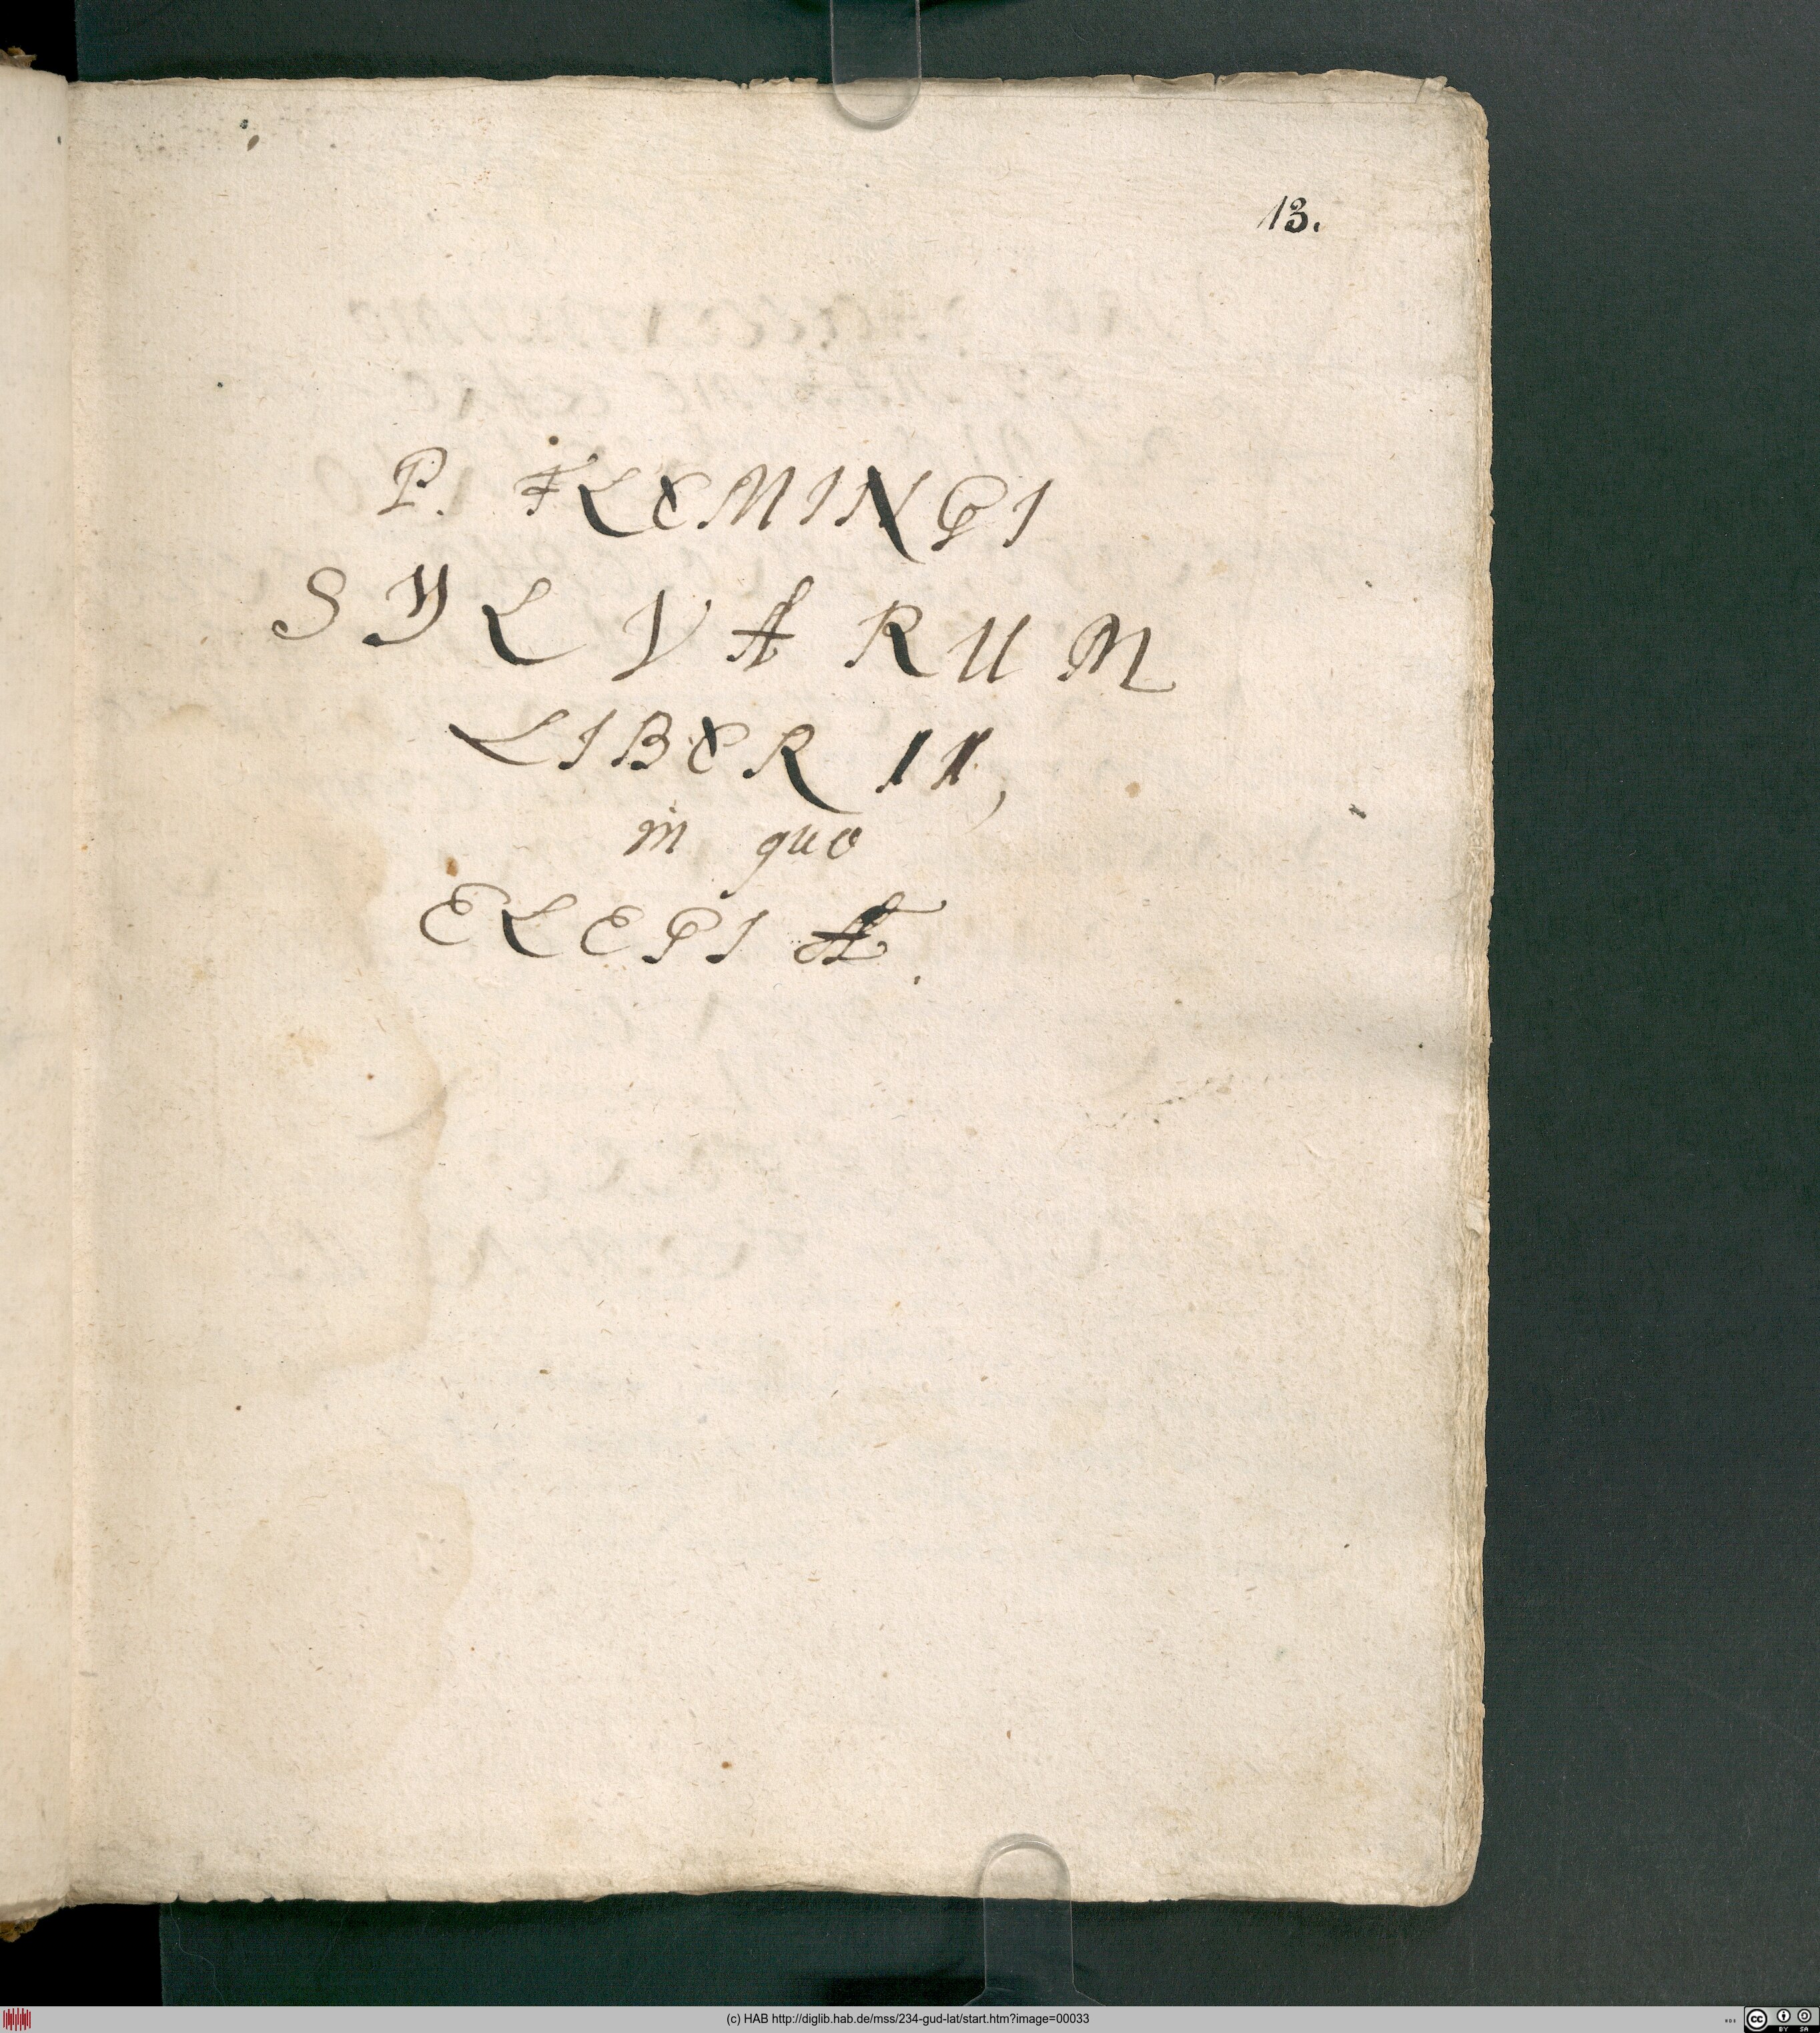 13.
P. FLEMINGI
SYLVARUM
LIBER II,
in quo
ELEGIÆ.
(c) HAB http://diglib.hab.de/mss/234-gud-lat/start.htm?image=00033
BY SA